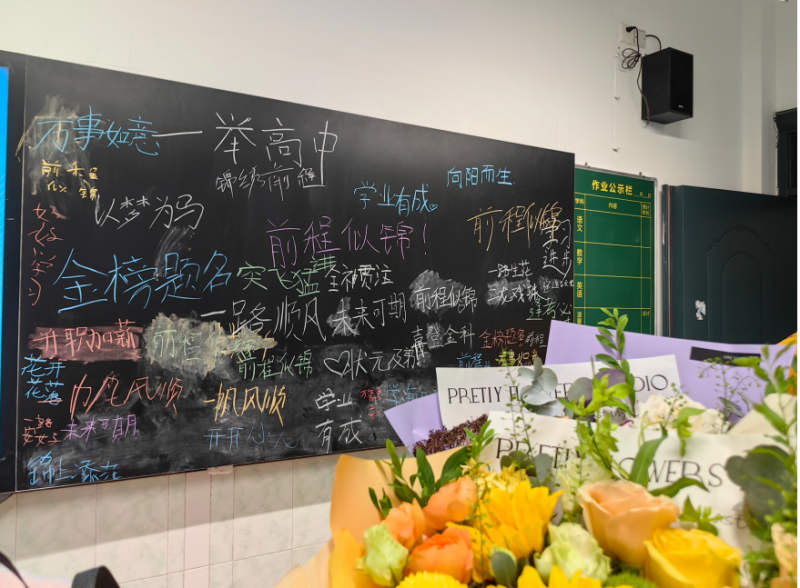 万事如意
一举高中
前程
似锦
锦绣前程
向阳而生
学业有成。
以梦为马
好好学习
前程似锦！
前程似锦
学习
进步
金榜题名
突飞猛进
全神贯注
一路生花
一路顺风
未来可期
前程似锦
逢考必
升职加薪
前程似锦
喜登金科
金榜题名
前程
花开
花落
前程似锦
状元及第
一帆风顺
学业
有成
未来可期
开开心心
锦上添花
作业公示栏
学科
内容
语文
数学
英语
PRETTY FLOWERS STUDIO
PRETTY FLOWERS